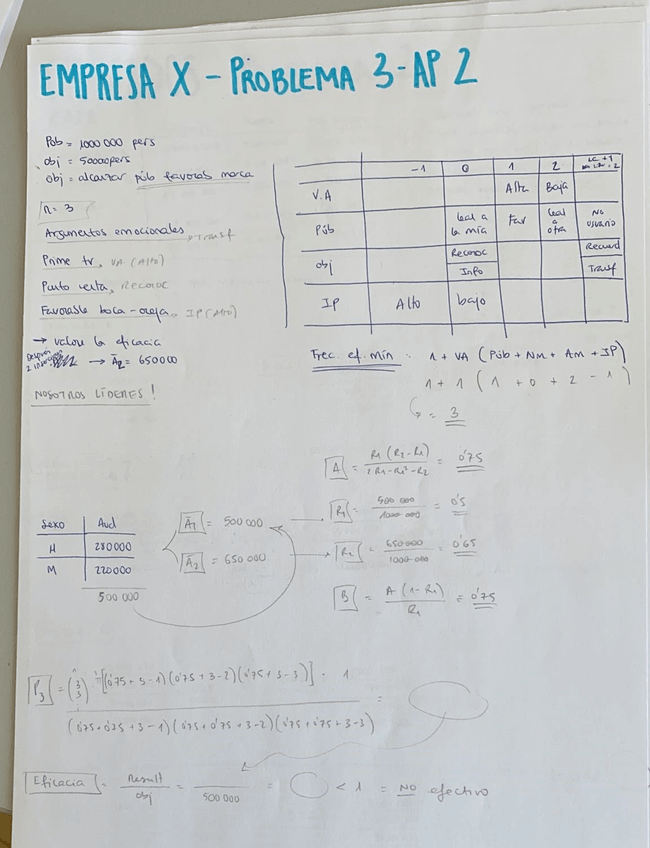 EMPRESA X - PROBLEMA 3-AP 2
Pob = 1000 000 pers
obj = 500000 pers
obj = alcanzar púb favorab marca
n = 3
Argumentos emocionales, Transf
Prime tv, VA (Alto)
Punto venta, Reconoc
Favorable boca-oreja, IP (Alto)
→ valora la eficacia
Después 2 inserciones → Ā₂ = 650000
NOSOTROS LÍDERES!
-1 0 1 2
V.A Alta Baja
Púb leal a la mía Fav leal a otra No usuario
obj Reconoc Recuerd
Info Transf
IP Alto bajo
Frec. ef. mín = 1 + VA (Púb + NM + AM + IP)
1 + 1 ( 1 + 0 + 2 - 1 )
= 3
A = R₁ (R₂-R₁) / 2R₁-R₁²-R₂ = 0'75
Sexo Aud
H 280000
M 220000
500 000
Ā₁ = 500 000
Ā₂ = 650 000
R₁ = 500 000 / 1000 000 = 0'5
R₂ = 650 000 / 1000 000 = 0'65
B = A (1-R₁) / R₁ = 0'75
P₃ = (3 3) [(0'75+3-1)(0'75+3-2)(0'75+3-3)] · 1 =
(0'75+0'75+3-1)(0'75+0'75+3-2)(0'75+0'75+3-3)
Eficacia = Result / obj = / 500 000 = < 1 = NO efectivo